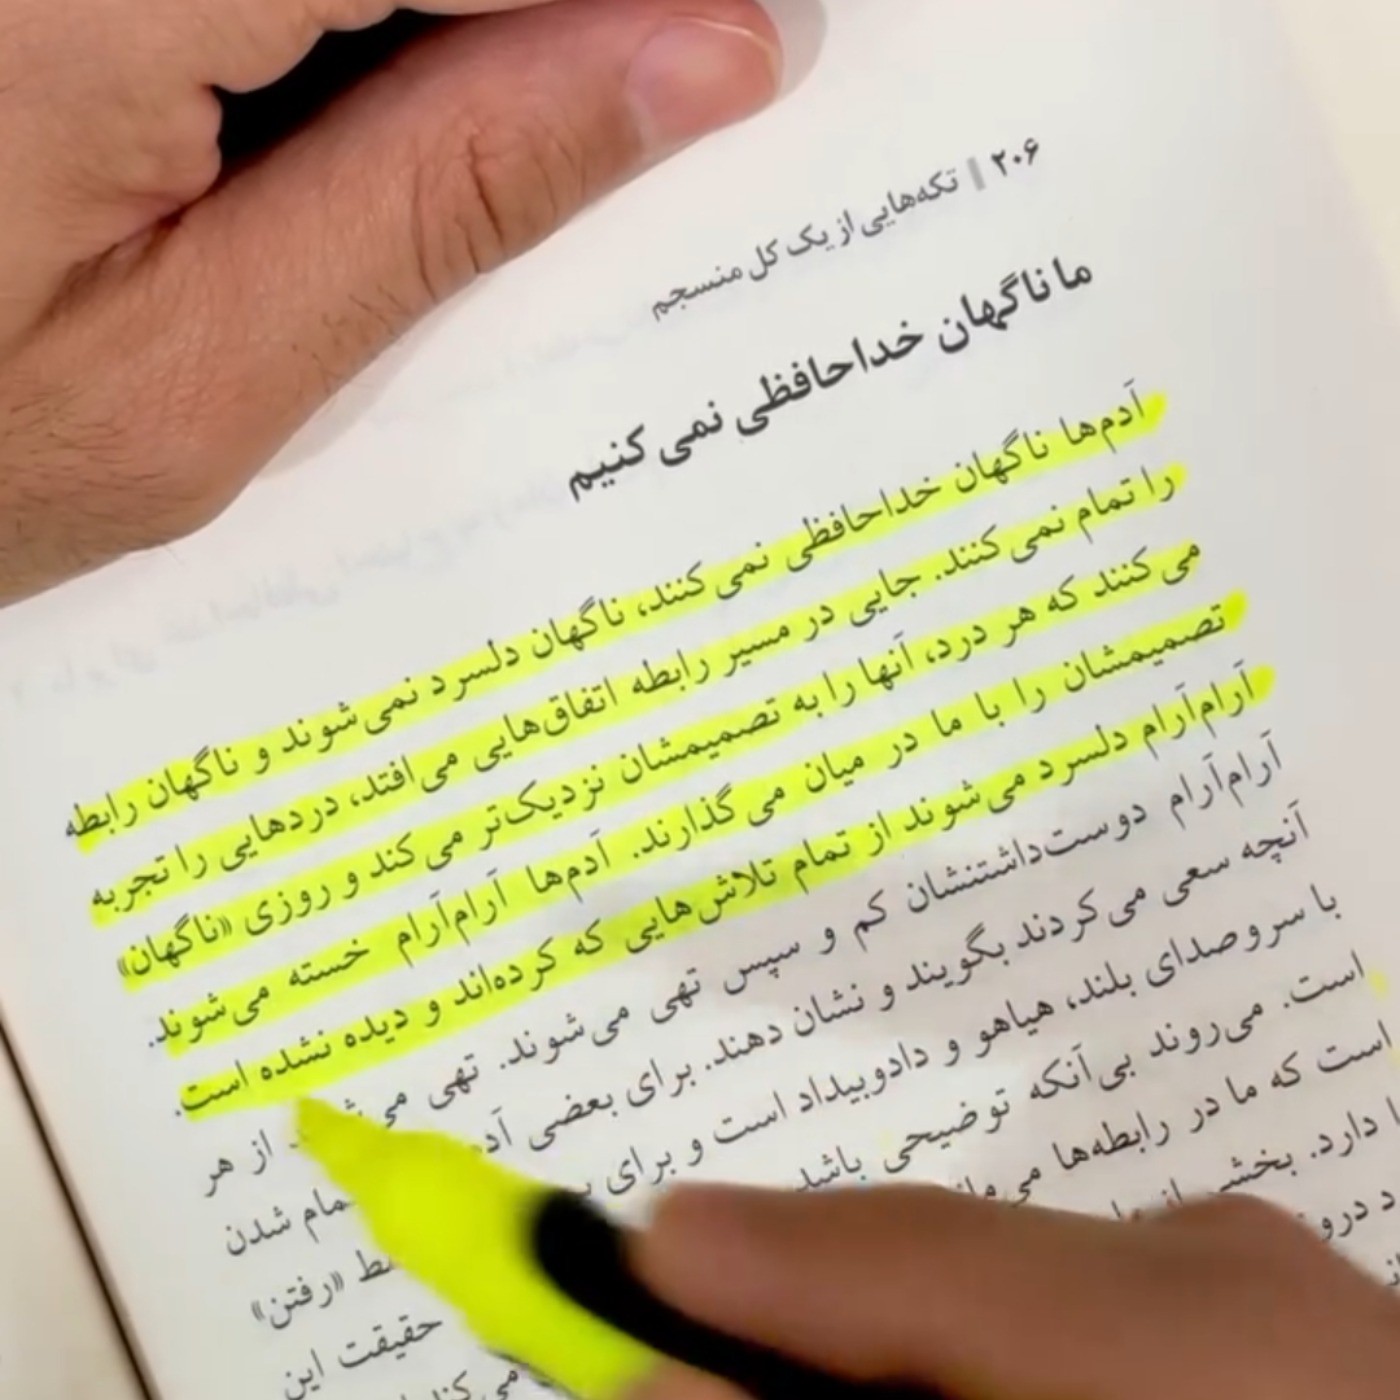 ۲۰۶ ‖ تکه‌هایی از یک کل منسجم
ما ناگهان خداحافظی نمی‌کنیم
آدم‌ها ناگهان خداحافظی نمی‌کنند، ناگهان دلسرد نمی‌شوند و ناگهان رابطه
را تمام نمی‌کنند. جایی در مسیر رابطه اتفاق‌هایی می‌افتد، دردهایی را تجربه
می‌کنند که هر درد، آنها را به تصمیمشان نزدیک‌تر می‌کند و روزی «ناگهان»
تصمیمشان را با ما در میان می‌گذارند. آدم‌ها آرام‌آرام خسته می‌شوند.
آرام‌آرام دلسرد می‌شوند از تمام تلاش‌هایی که کرده‌اند و دیده نشده است.
آرام‌آرام دوست‌داشتنشان کم و سپس تهی می‌شوند. تهی از هر
آنچه سعی می‌کردند بگویند و نشان دهند. برای بعضی شدن
با سروصدای بلند، هیاهو و دادوبیداد است و برای «رفتن»
است. می‌روند بی‌آنکه توضیحی باشد حقیقت این
است که ما در رابطه‌ها
دارد. بخشی